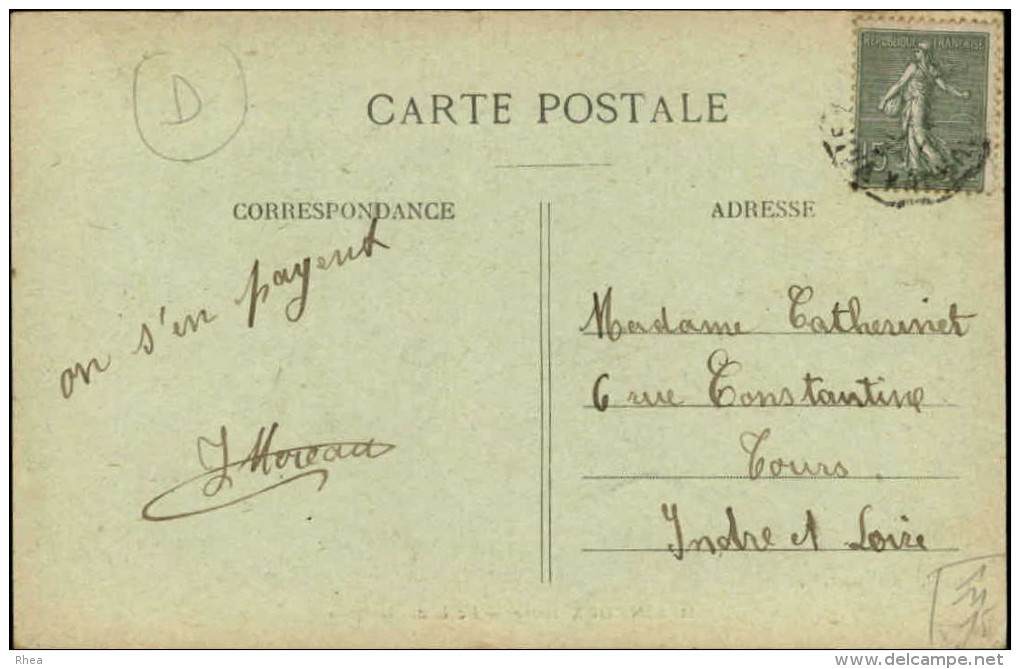 D
CARTE POSTALE
REPUBLIQUE FRANÇAISE
15
CORRESPONDANCE
ADRESSE
on s'en payent
J Moreau
Madame Catherinet
6 rue Constantine
Tours
Indre et Loire
Rhea
www.delcampe.net